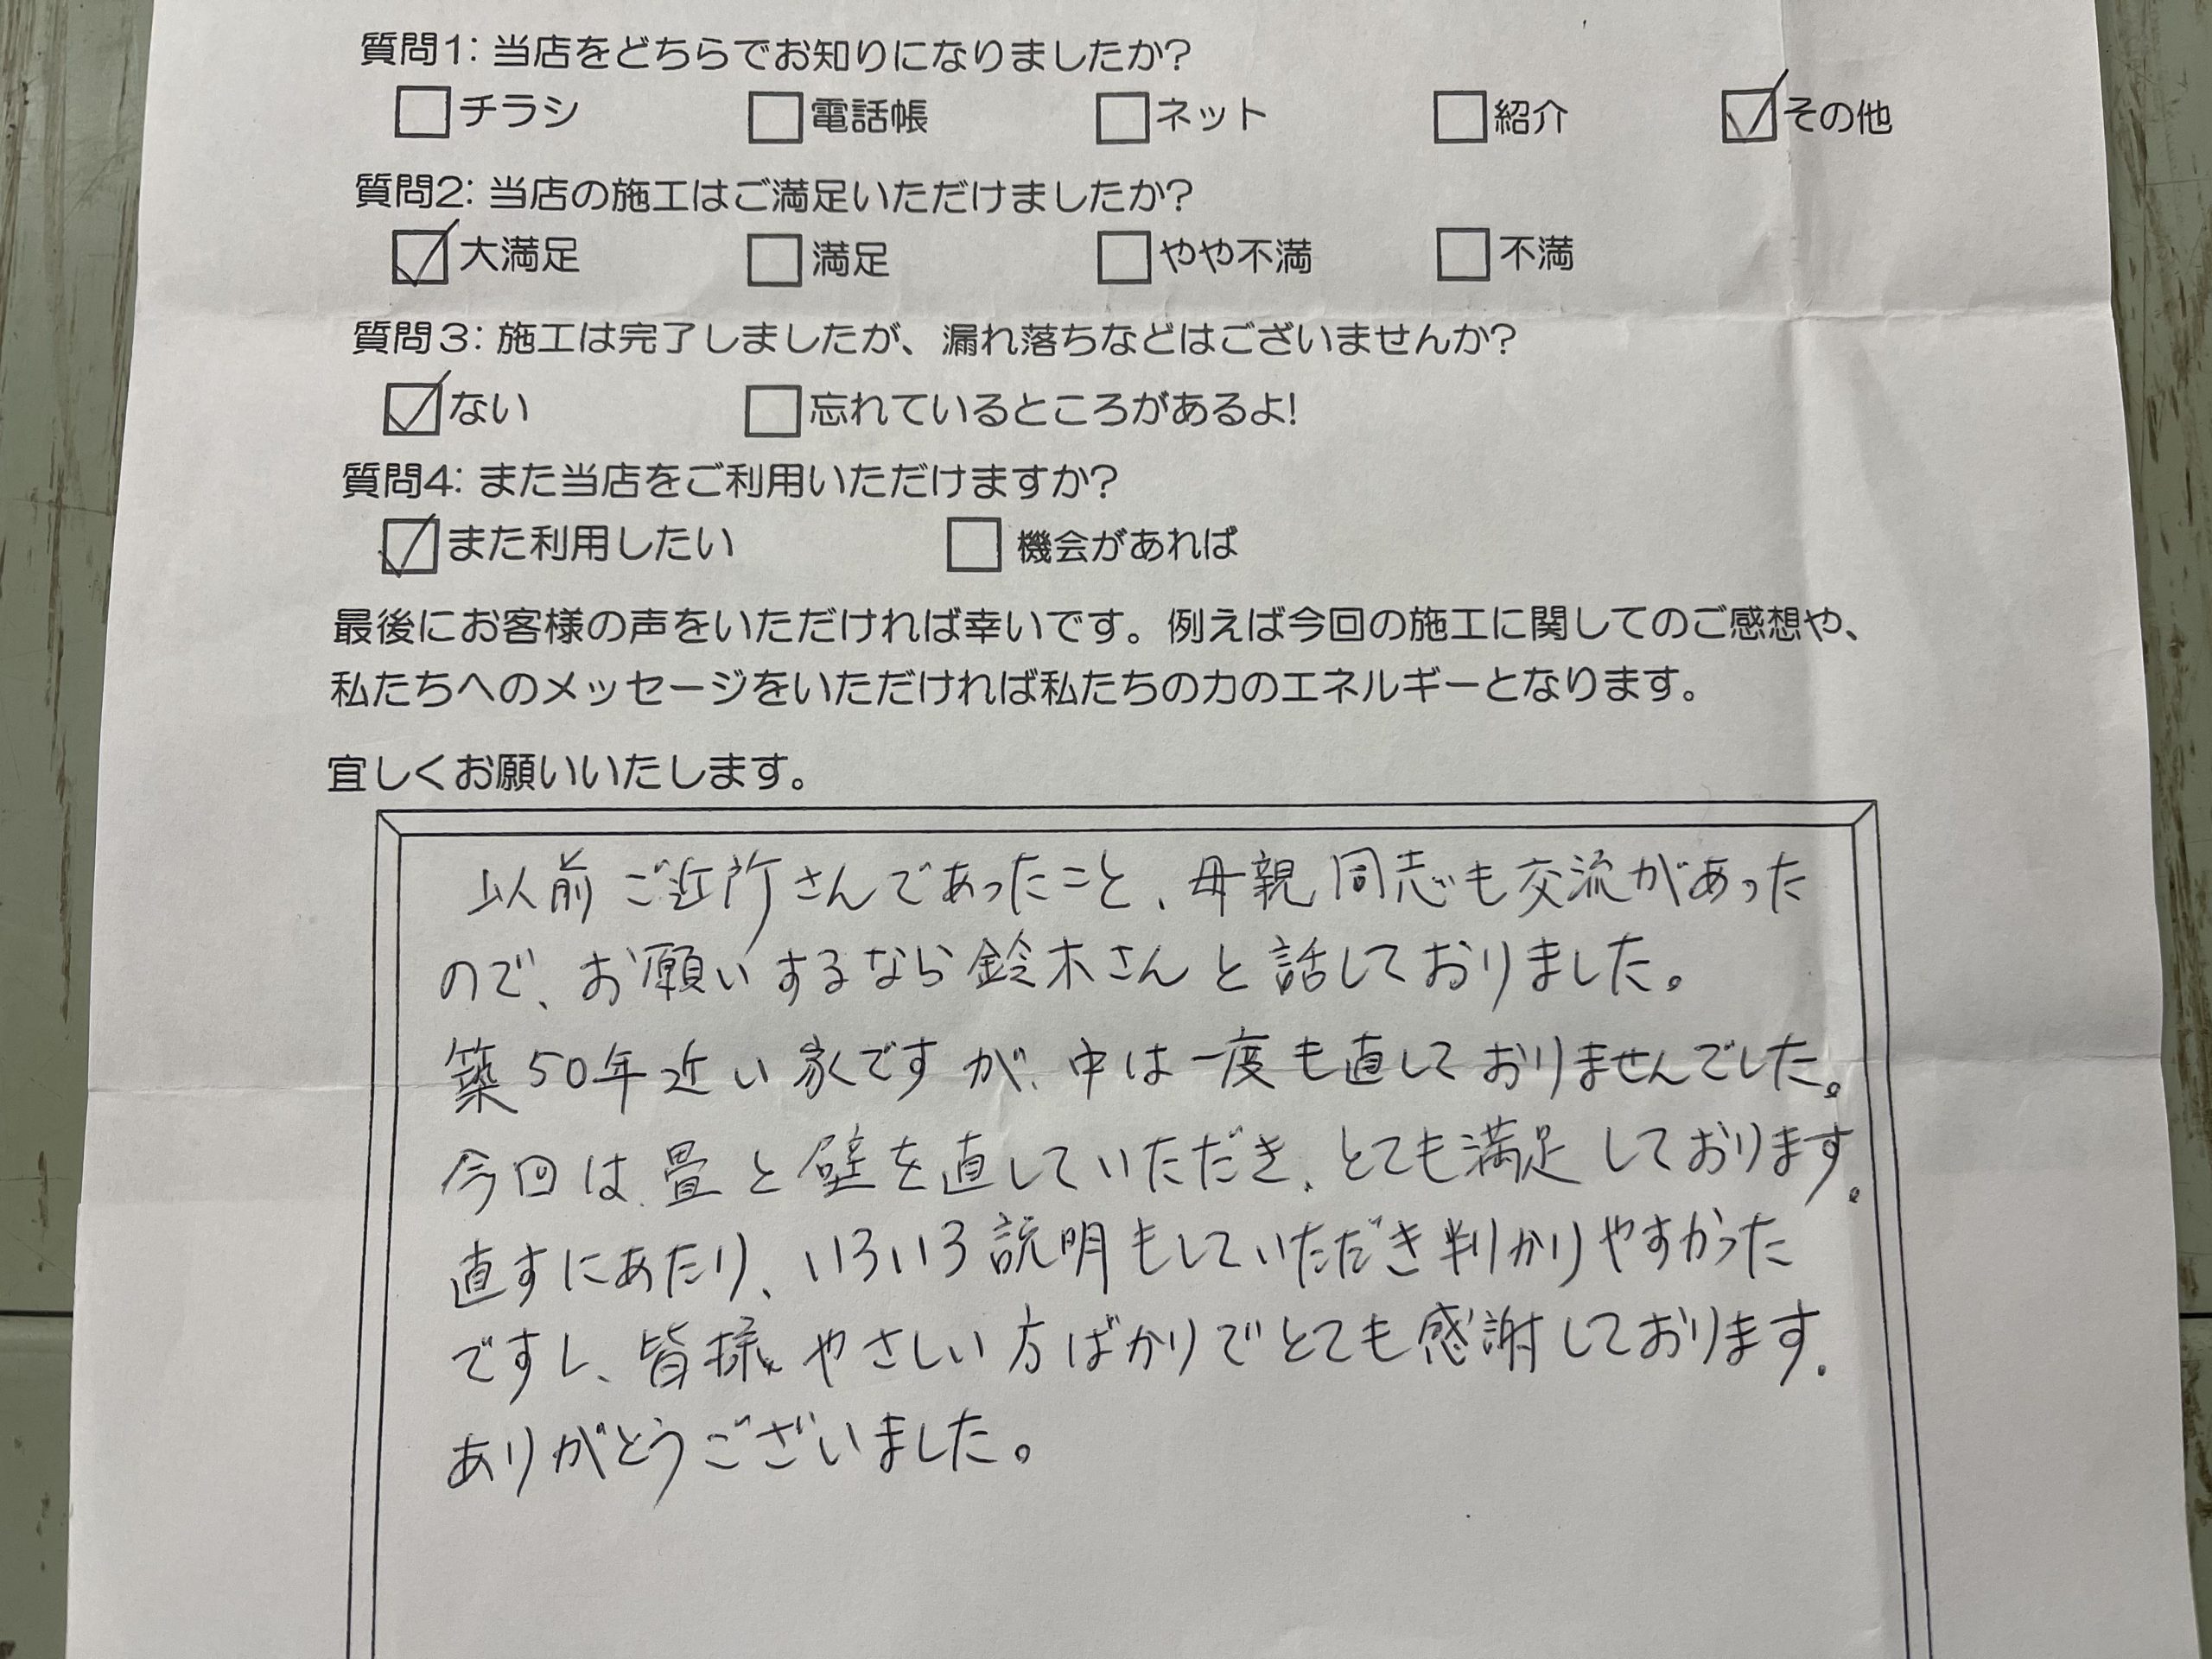 質問1: 当店をどちらでお知りになりましたか?
□チラシ □電話帳 □ネット □紹介 ☑その他
質問2: 当店の施工はご満足いただけましたか?
☑大満足 □満足 □やや不満 □不満
質問3: 施工は完了しましたが、漏れ落ちなどはございませんか?
☑ない □忘れているところがあるよ!
質問4: また当店をご利用いただけますか?
☑また利用したい □機会があれば
最後にお客様の声をいただければ幸いです。例えば今回の施工に関してのご感想や、
私たちへのメッセージをいただければ私たちの力のエネルギーとなります。
宜しくお願いいたします。
以前ご近所さんであったこと、母親同志も交流があった
ので、お願いするなら鈴木さんと話しておりました。
築50年近い家ですが、中は一度も直しておりませんでした。
今回は、畳と壁を直していただき、とても満足しております。
直すにあたり、いろいろ説明もしていただき判かりやすかった
ですし、皆様やさしい方ばかりでとても感謝しております。
ありがとうございました。